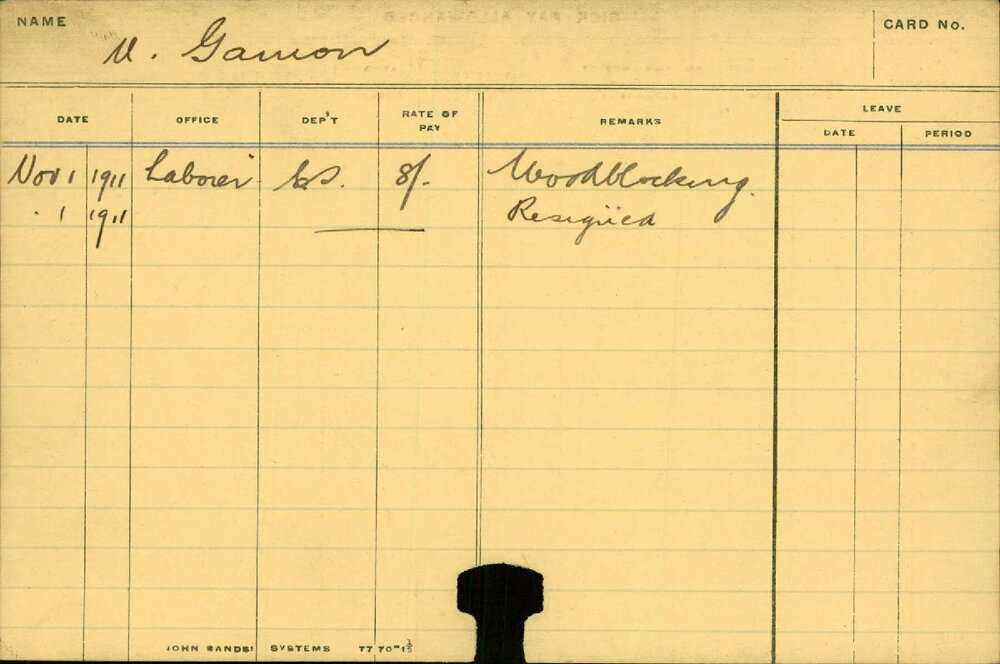 NAME
CARD No.
Gamon
DATE OFFICE DEP'T RATE OF PAY REMARKS LEAVE
DATE PERIOD
Nov 1 1911 Laborer 8/- Woodblocking.
. 1 1911 Resigned
JOHN SANDS' SYSTEMS